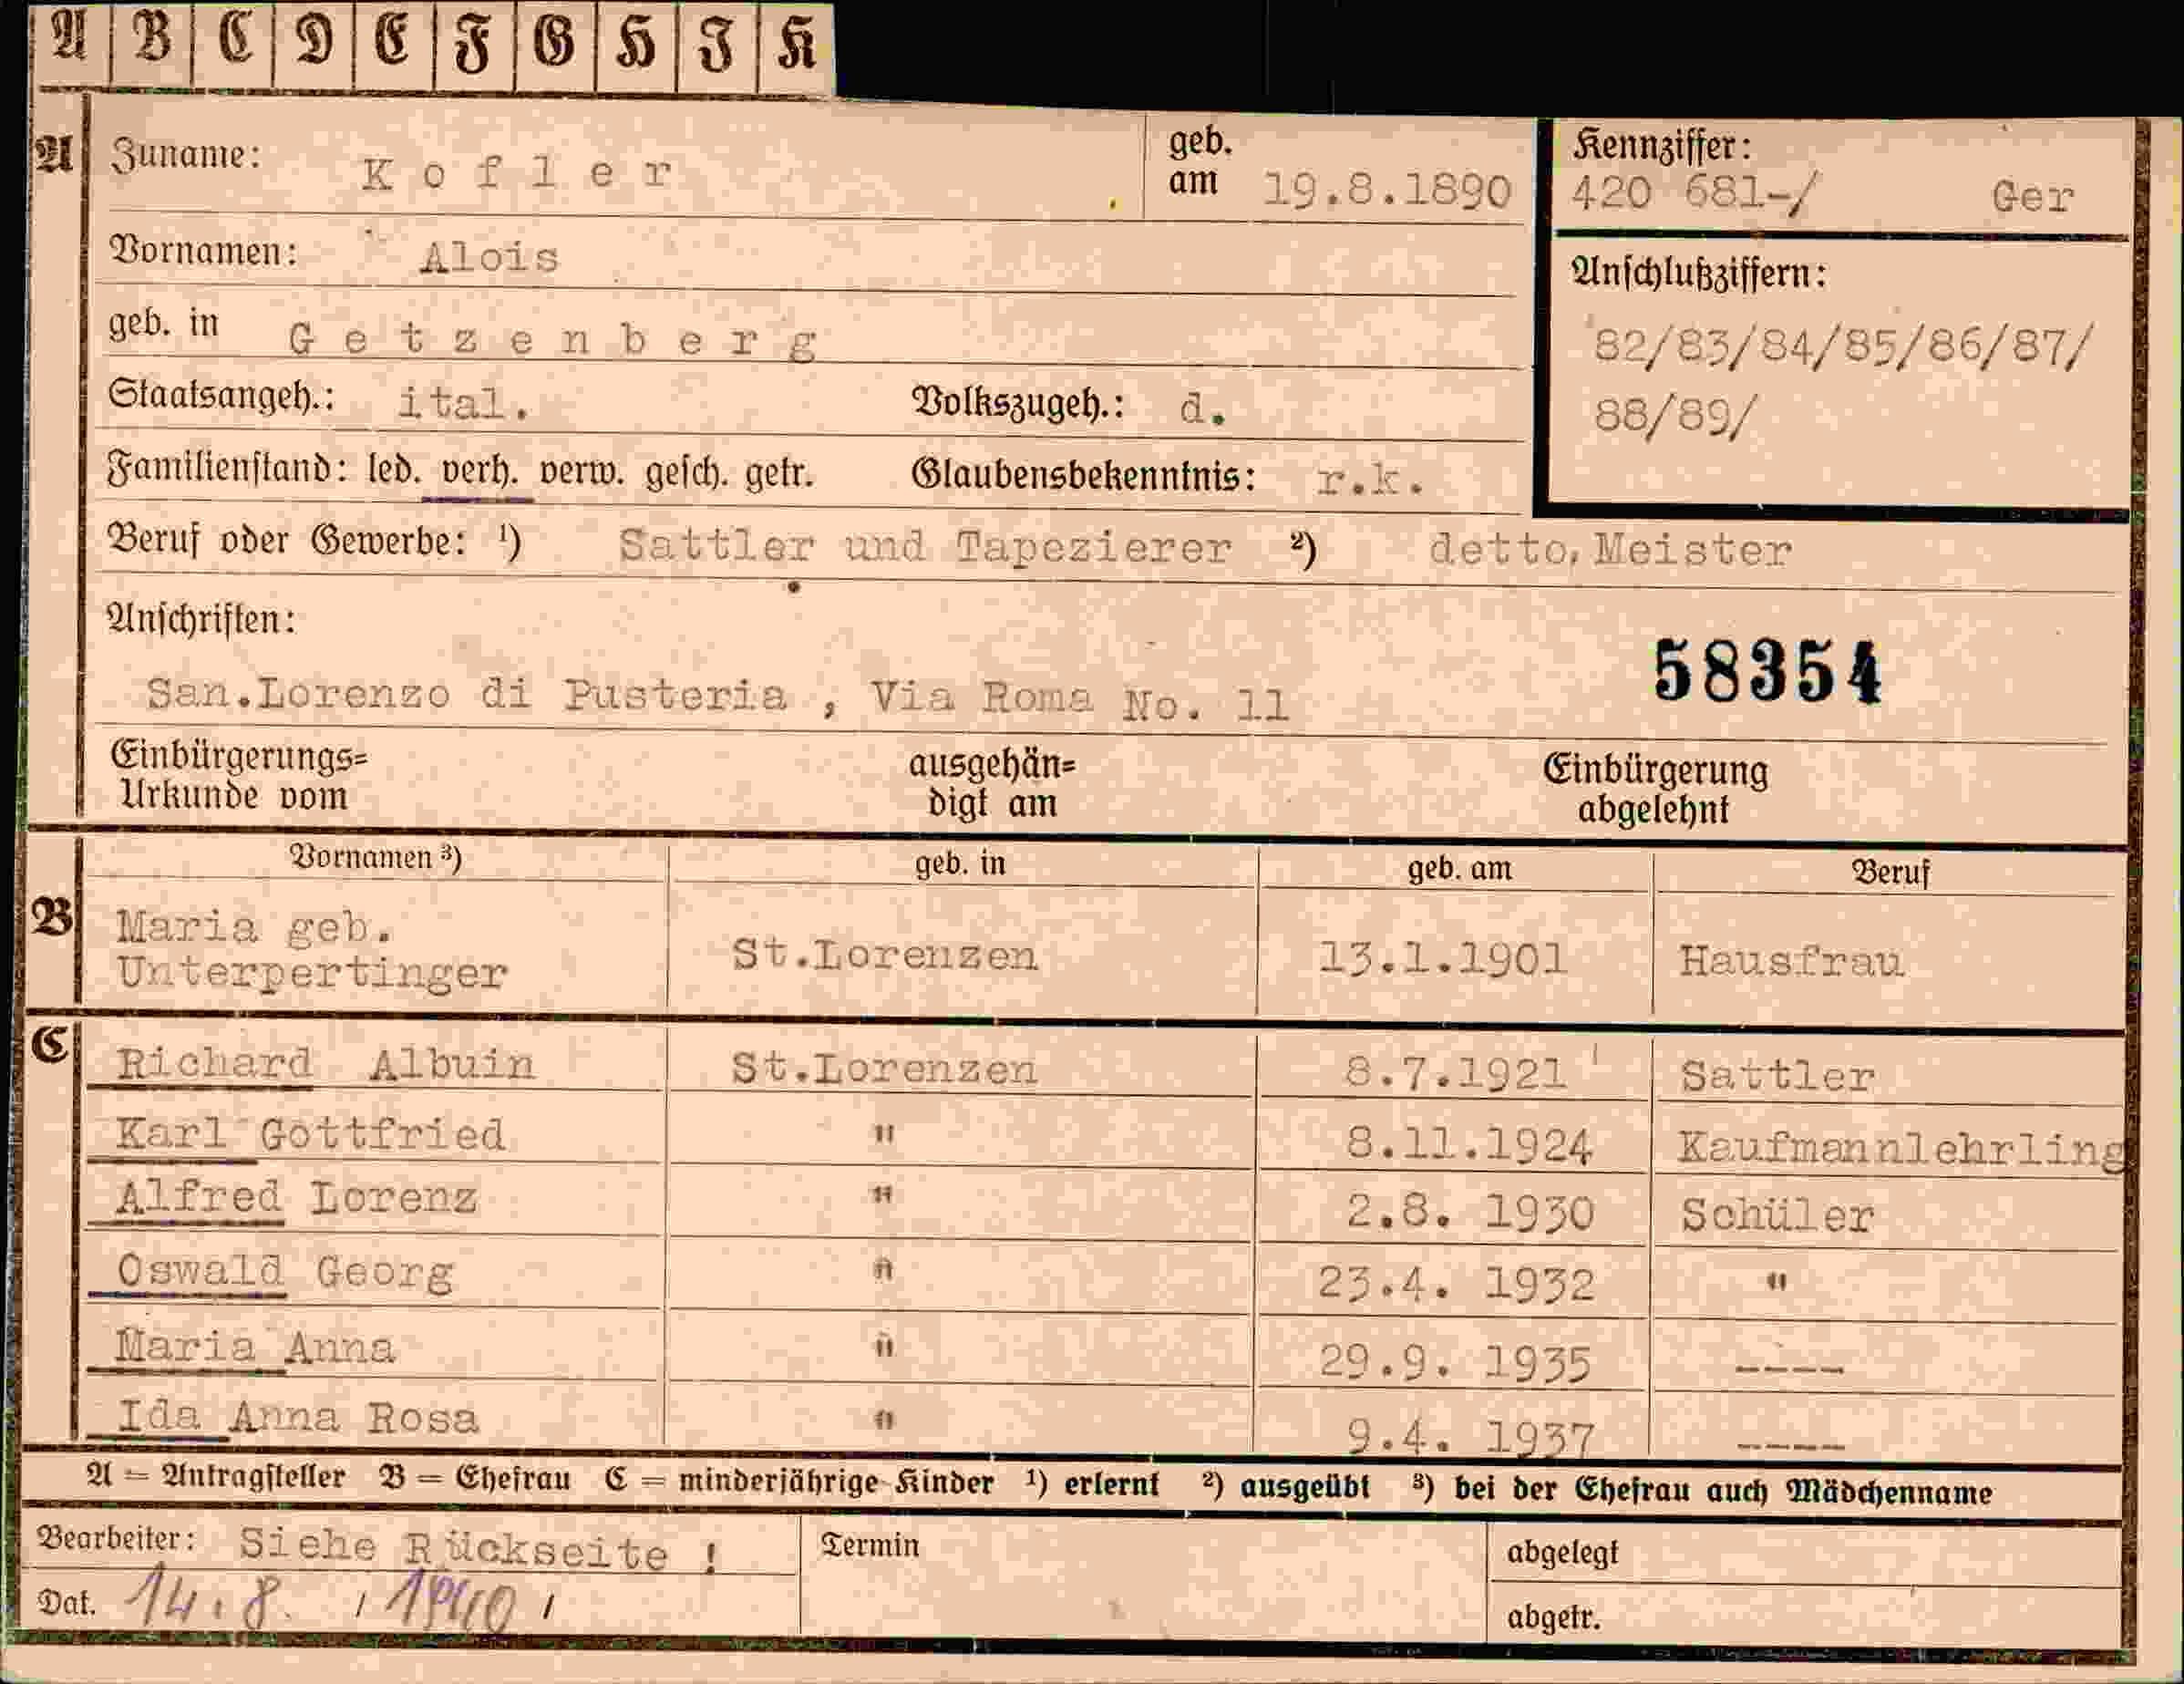 A B C D E F G H I K
A Zuname: Kofler geb. am 19.8.1890 Kennziffer: 420 681-/ Ger
Vornamen: Alois Anschlußziffern:
geb. in Getzenberg 82/83/84/85/86/87/
Staatsangeh.: ital. Volkszugeh.: d. 88/89/
Familienstand: led. verh. verw. gesch. getr. Glaubensbekenntnis: r.k.
Beruf oder Gewerbe: ¹) Sattler und Tapezierer ²) detto, Meister
Anschriften:
58354
San.Lorenzo di Pusteria , Via Roma No. 11
Einbürgerungs= ausgehän= Einbürgerung
Urkunde vom digt am abgelehnt
Vornamen ³) geb. in geb. am Beruf
B Maria geb.
Unterpertinger St.Lorenzen 13.1.1901 Hausfrau
C Richard Albuin St.Lorenzen 8.7.1921 Sattler
Karl Gottfried " 8.11.1924 Kaufmannlehrling
Alfred Lorenz " 2.8. 1930 Schüler
Oswald Georg " 23.4. 1932 "
Maria Anna " 29.9. 1935 ----
Ida Anna Rosa " 9.4. 1937 ----
A = Antragsteller B = Ehefrau C = minderjährige Kinder ¹) erlernt ²) ausgeübt ³) bei der Ehefrau auch Mädchenname
Bearbeiter: Siehe Rückseite ! Termin abgelegt
Dat. 14.8. 1940 abgetr.